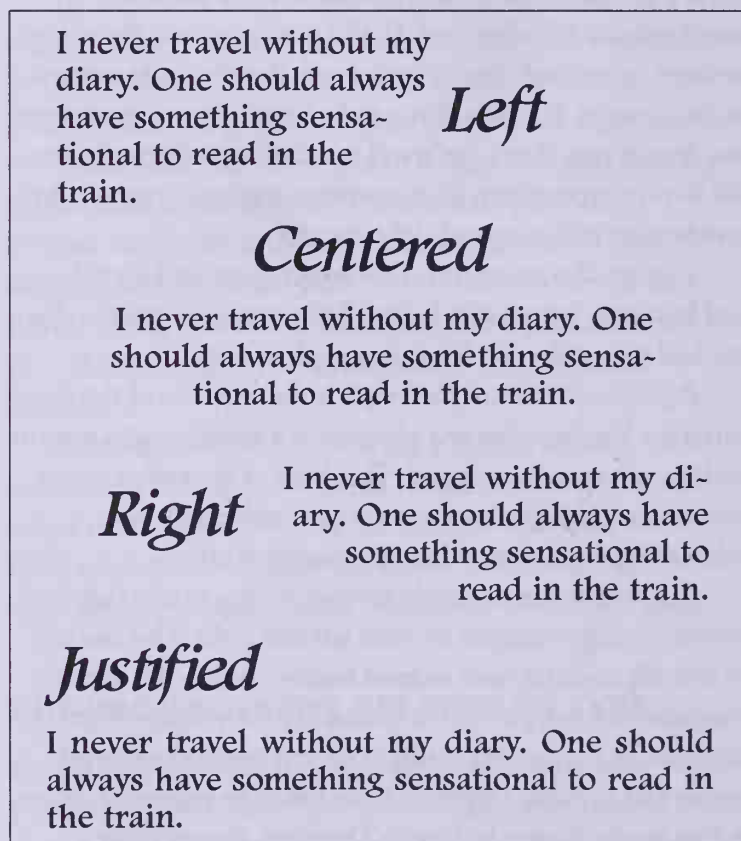 I never travel without my
diary. One should always
have something sensa-
tional to read in the
train.
Left
Centered
I never travel without my diary. One
should always have something sensa-
tional to read in the train.
Right
I never travel without my di-
ary. One should always have
something sensational to
read in the train.
Justified
I never travel without my diary. One should
always have something sensational to read in
the train.